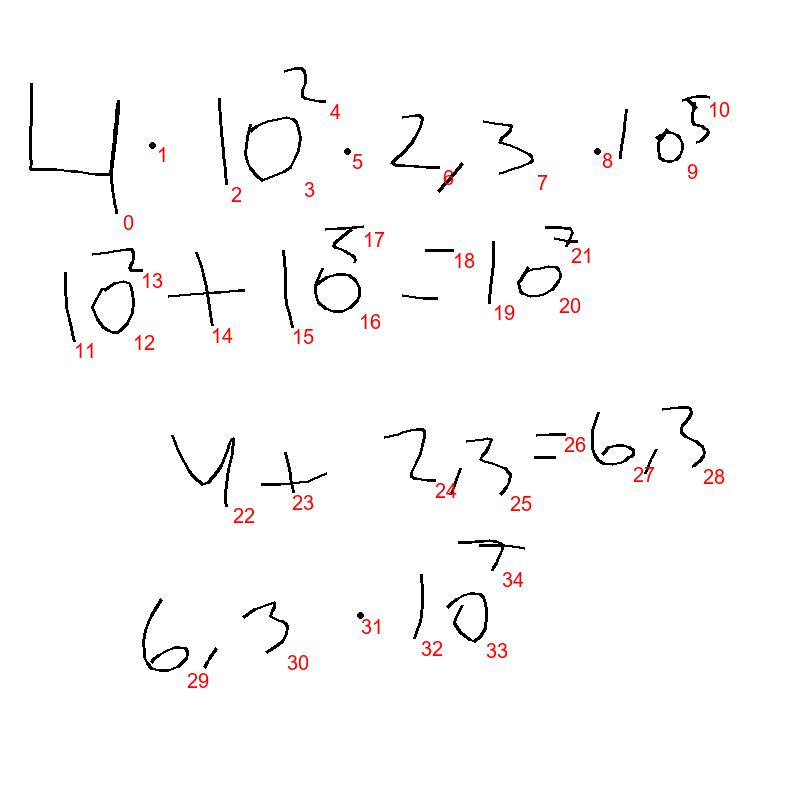 4 · 10² · 2,3 · 10⁵
0 1 2 3 4 5 6 7 8 9 10
10² + 10⁵ = 10⁷
11 12 13 14 15 16 17 18 19 20 21
4 + 2,3 = 6,3
22 23 24 25 26 27 28
6,3 · 10⁷
29 30 31 32 33 34